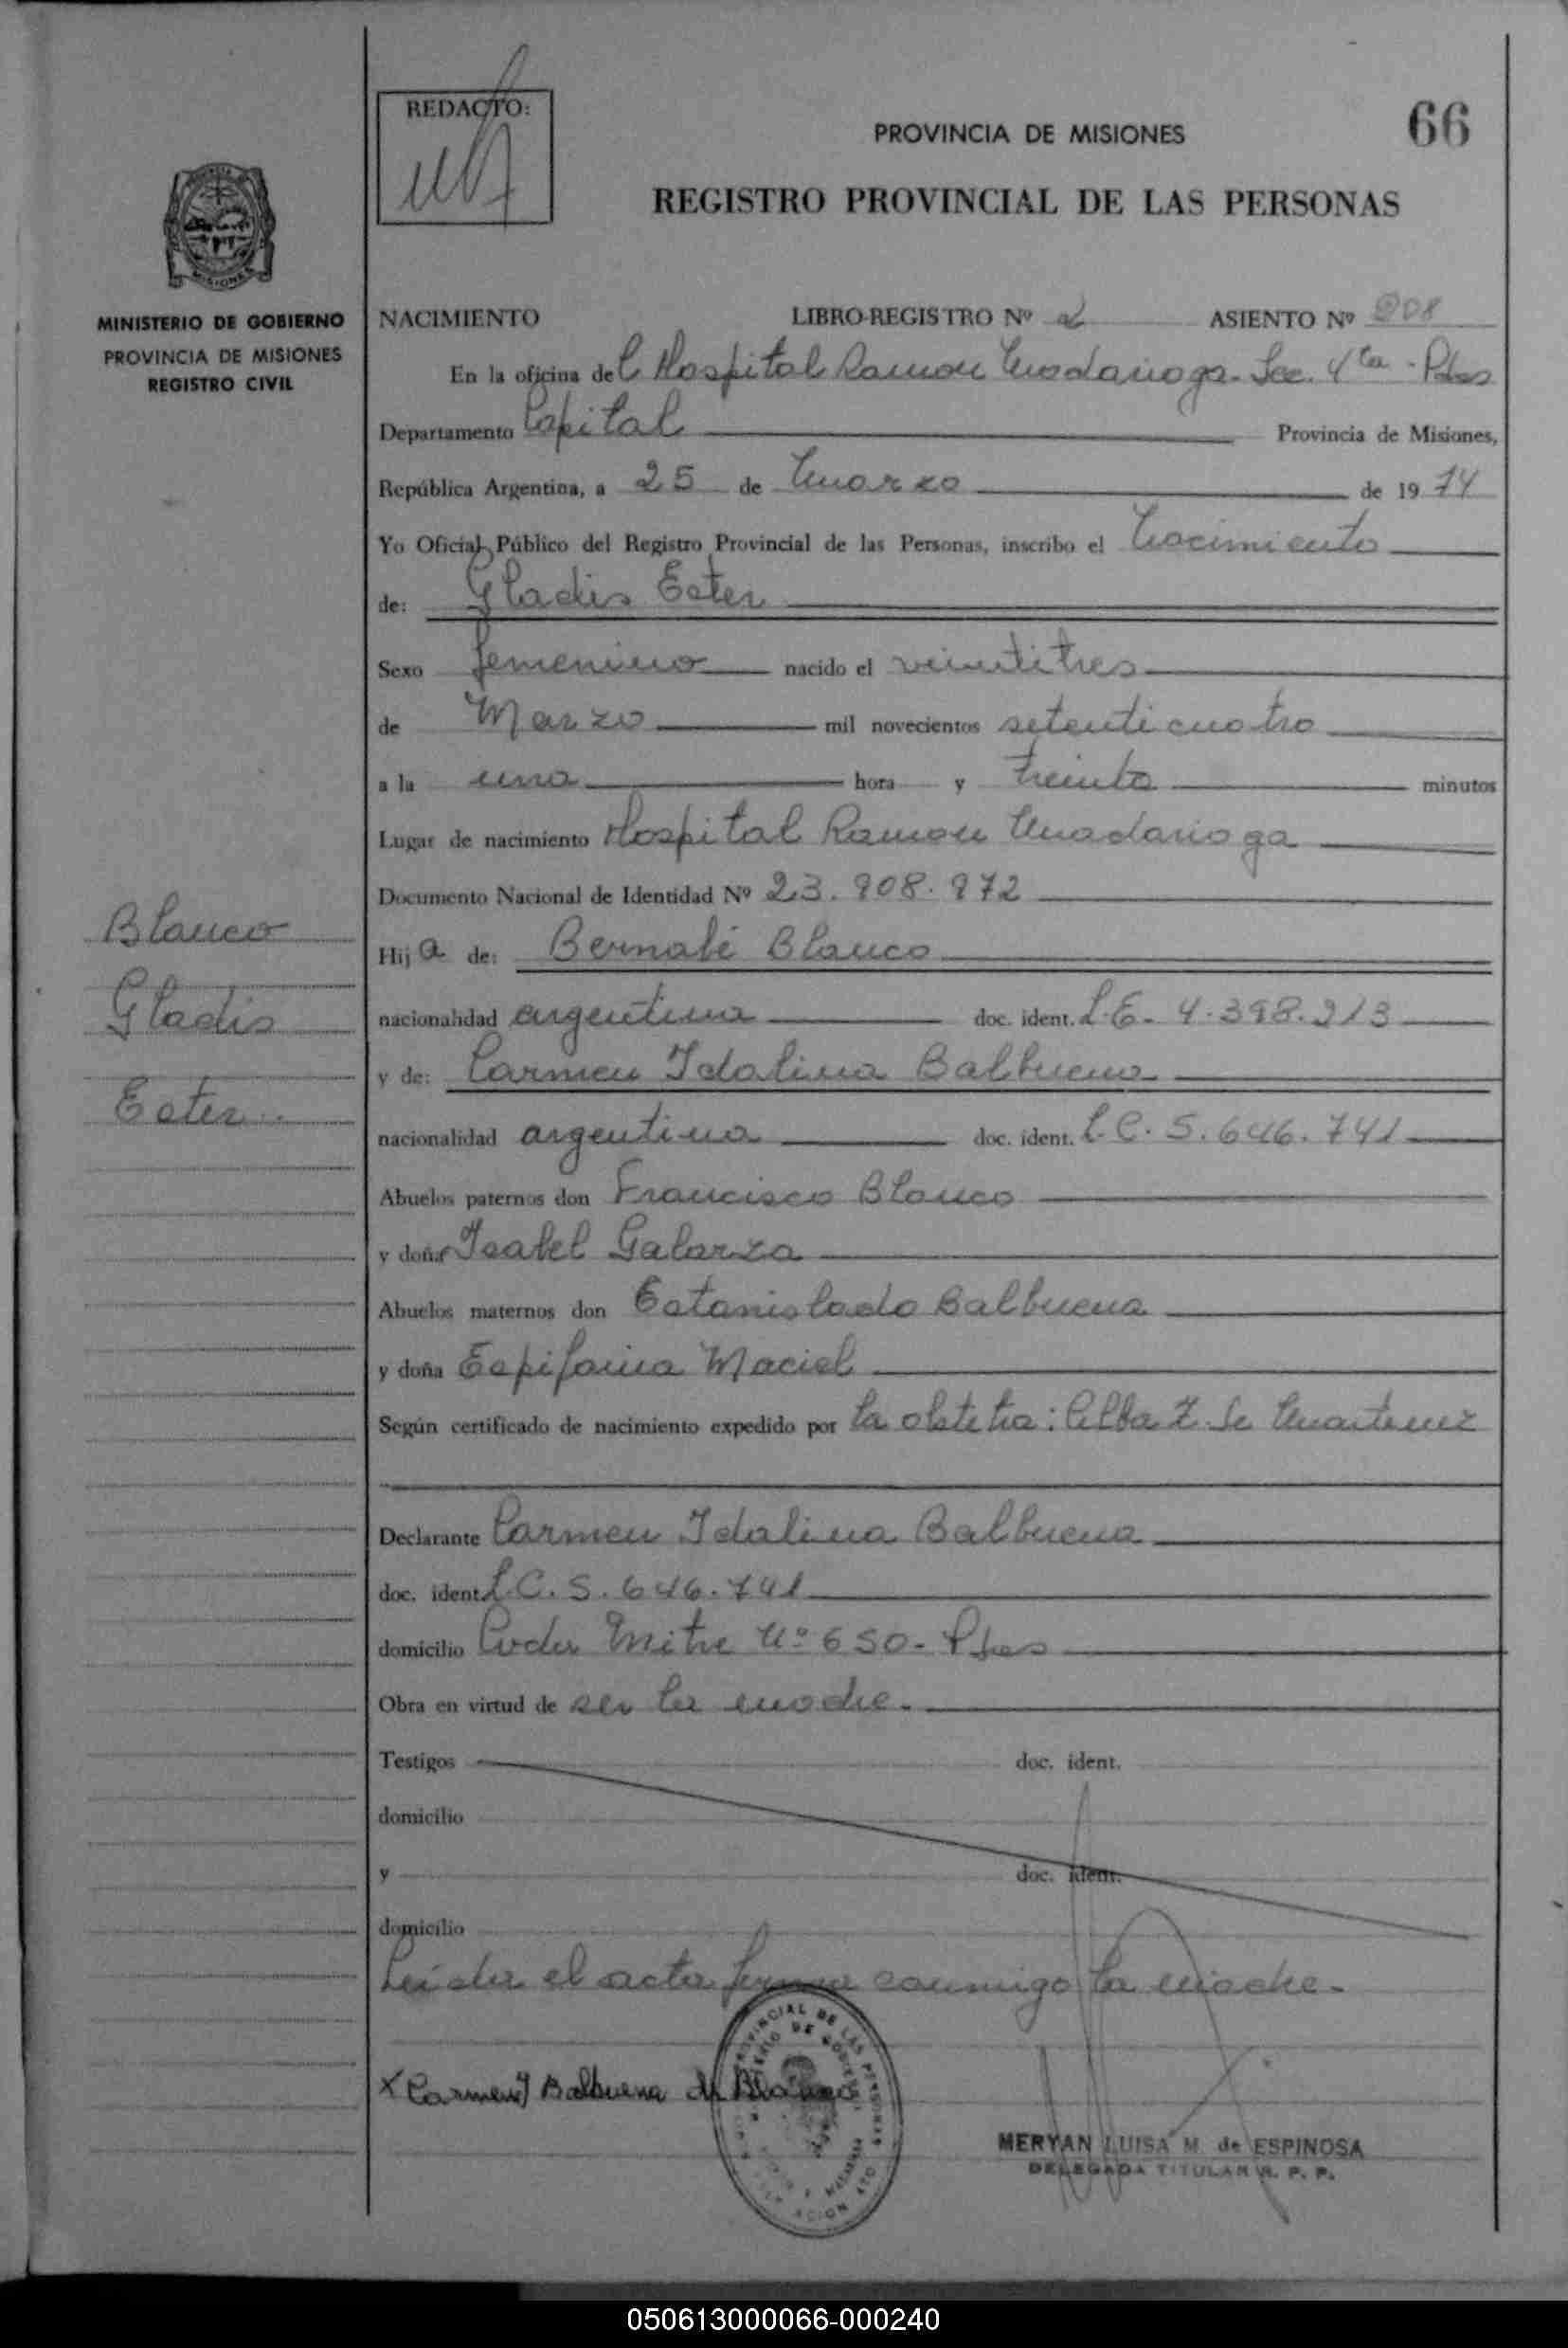 REDACTO:
PROVINCIA DE MISIONES
66
REGISTRO PROVINCIAL DE LAS PERSONAS
MINISTERIO DE GOBIERNO
PROVINCIA DE MISIONES
REGISTRO CIVIL
NACIMIENTO LIBRO-REGISTRO Nº 2 ASIENTO Nº 208
En la oficina del Hospital Ramon Madariaga - Sec. 4ta - Pdas
Departamento Capital Provincia de Misiones,
República Argentina, a 25 de Marzo de 1974
Yo Oficial Público del Registro Provincial de las Personas, inscribo el Nacimiento
de: Gladis Ester
Sexo femenino nacido el veintitres
de Marzo mil novecientos setenticuatro
a la una hora y treinta minutos
Lugar de nacimiento Hospital Ramon Madariaga
Documento Nacional de Identidad Nº 23.908.972
Blanco
Hija de: Bernabé Blanco
Gladis
nacionalidad argentina doc. ident. L.E. 4.398.213
y de: Carmen Idalina Balbuena
Ester
nacionalidad argentina doc. ident. L.C. 5.646.741
Abuelos paternos don Francisco Blanco
y doña Isabel Galarza
Abuelos maternos don Estanislado Balbuena
y doña Espifania Maciel
Según certificado de nacimiento expedido por la obstetra: Alba Z. de Martinez
Declarante Carmen Idalina Balbuena
doc. ident. L.C. 5.646.741
domicilio Avda Mitre Nº 650 - Pdas
Obra en virtud de ser la madre.
Testigos doc. ident.
domicilio
y doc. ident.
domicilio
Leida el acta firma conmigo la madre.
x Carmen I Balbuena de Blanco
MERYAN LUISA M. de ESPINOSA
DELEGADA TITULAR R. P. P.
050613000066-000240